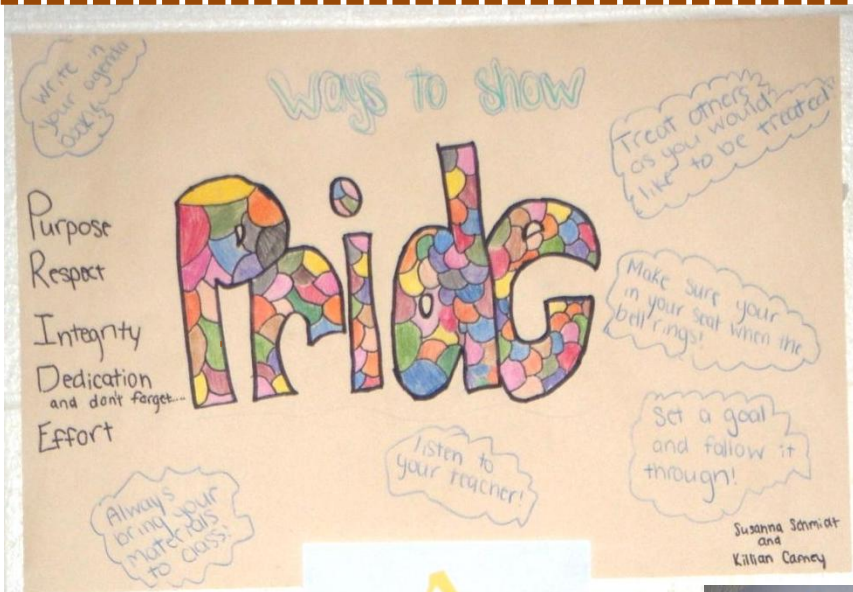 Write in
your agenda
book!
Ways to show
Pride
Treat others
as you would
like to be treated!
Purpose
Respect
Integrity
Dedication
and don't forget....
Effort
Make sure your
in your seat when the
bell rings!
Set a goal
and follow it
through!
listen to
your teacher!
Always
bring your
materials
to class!
Susanna Schmidt
and
Killian Carney